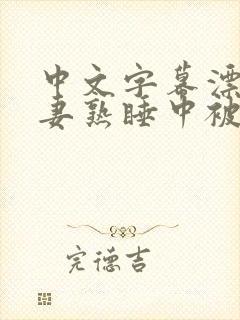 中文字幕漂
妻熟睡中被
完德吉